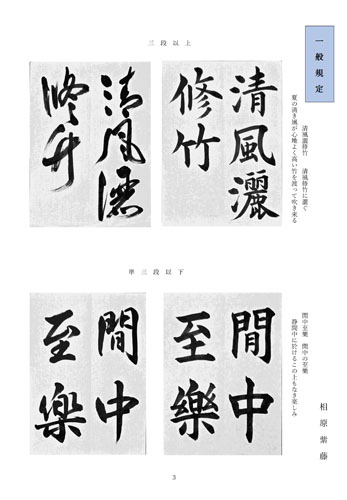 一般規定
三段以上
清風灑脩竹　清風脩竹に灑ぐ
夏の清き風が心地よく高い竹を渡って吹き来る
清風灑
修竹
清風灑
修竹
準三段以下
閒中至樂　閒中の至樂
静閒中に於けるこの上もなき楽しみ
相原紫藤
閒中
至樂
閒中
至楽
3